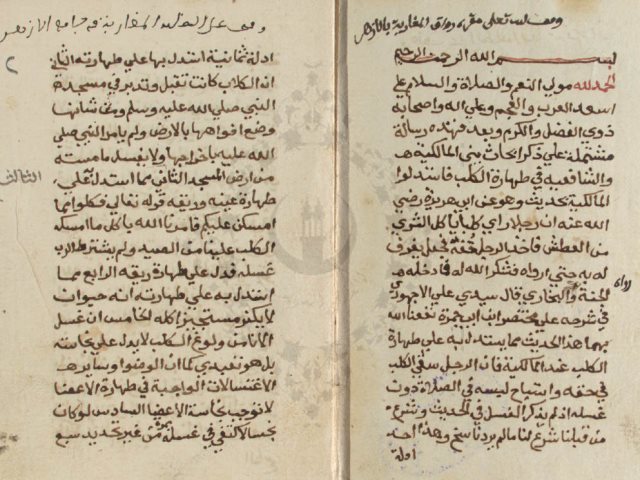 وقف لله تعالى مقره رواق المغاربة بالأزهر
بسم الله الرحمن الرحيم
الحمد لله مولي النعم والصلاة والسلام على
اسعد العرب والعجم وعلى اله واصحابه
ذوي الفضل والكرم وبعد فهذه رسالة
مشتملة على ذكر ابحاث بين المالكية
والشافعية في طهارة الكلب فاستدلوا
المالكية بحديث وهو عن ابي هريرة رضي
الله عنه ان رجلا راي كلبا ياكل الثري
من العطش فاخذ الرجل خفه فجعل يغرف
له به حتي ارواه فشكر الله له فادخله
الجنة رواه البخاري قال سيدي علي الاجهوري
في شرحه على مختصر ابن ابي جمرة نفعنا الله
بهما هذا الحديث مما يستدل به على طهارة
الكلب عند المالكية فان الرجل سقي الكلب
في خفه واستباح لبسه في الصلاة دون
غسله اذ لم يذكر الغسل في الحديث وشرع
من قبلنا شرع لنا ما لم يرد ناسخ وهذا احد
ادلة
وقف على المغاربة في جامع الازهر
٢
ادلة ثمانية استدل بها على طهارته الثاني
ان الكلاب كانت تقبل وتدبر في مسجده
النبي صلي الله عليه وسلم ومن شانها
وضع افواهها بالارض ولم يامر النبي صلي
الله عليه باخراجها ولا بغسل ما مسته
من ارض المسجد الثالث مما استدل على
الثالث
طهارة عينه وريقه قوله تعالي فكلوا مما
امسكن عليكم فامرنا الله باكل ما امسكه
الكلب علينا من الصيد ولم يشترط الرب
غسله فدل على طهارة ريقه الرابع مما
استدل به على طهارته انه حيوان
لا يكفر مستحيز اكله الخامس ان غسل
الانا من ولوغ الكلب لا يدل على نجاسته
بل هو تعبدي كما ان الوضو وساير
الاغتسالات الواجبة في طهارة الاعضا
لا توجب نجاسة الاعضا السادس لو كان
نجسا لاكتفي في غسله من غير تحديد سبع